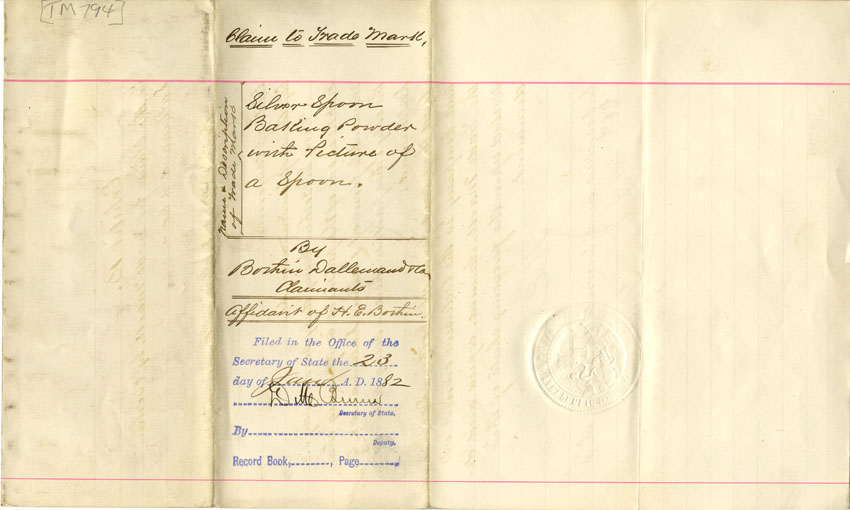 [TM 794]
Claim to Trade Mark,
Name & Description
of Trade Mark
Silver Spoon
Baking Powder
with Picture of
a Spoon.
By
Bothin Dallemand & Co
Claimants
Affidavit of H. E. Bothin.
Filed in the Office of the
Secretary of State the 23
day of A. D. 1882
Secretary of State.
By
Deputy.
Record Book, Page